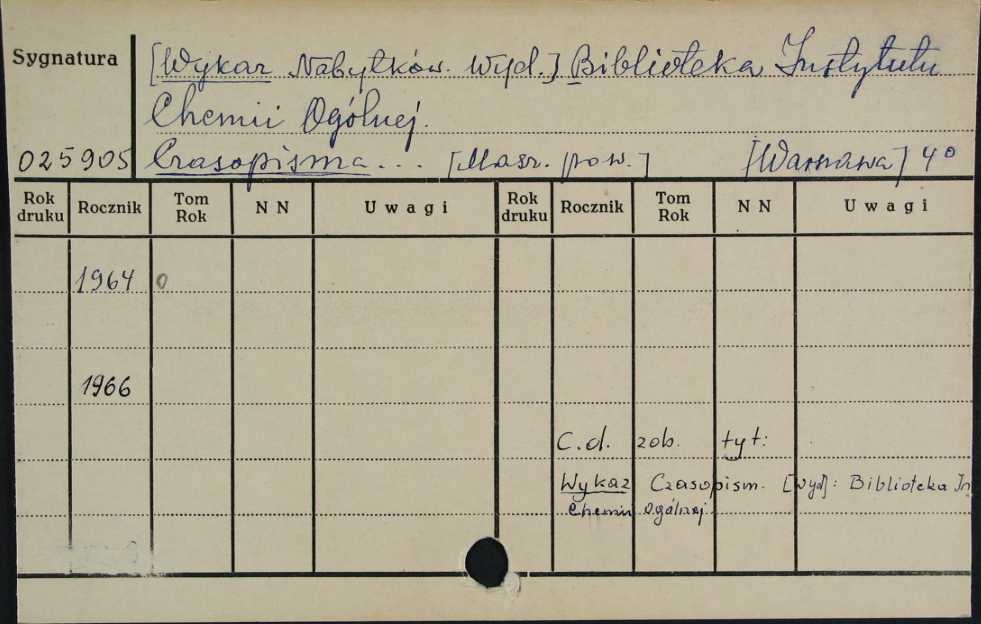 Sygnatura
[Wykaz Nabytków. Wyd.] Biblioteka Instytutu
Chemii Ogólnej.
025905 Czasopisma... [Masz. pow.] [Warszawa] 4°
Rok druku Rocznik Tom Rok NN Uwagi Rok druku Rocznik Tom Rok NN Uwagi
1964 0
1966
C.d. zob. tyt:
Wykaz Czasopism. [Wyd]: Biblioteka In
Chemii Ogólnej